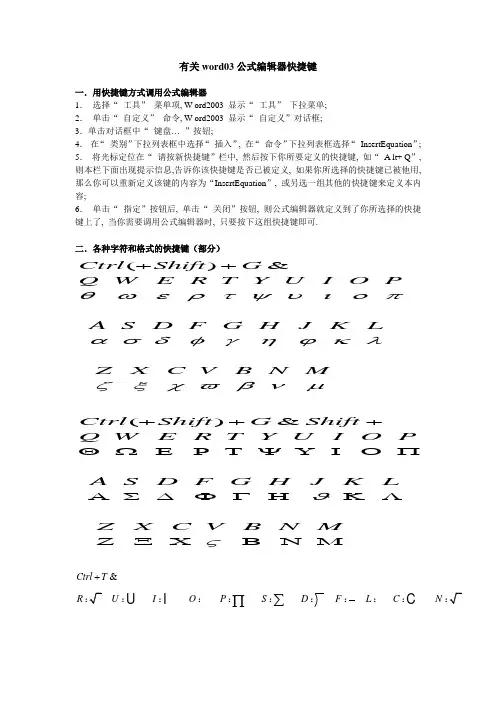 有关word03公式编辑器快捷键
一．用快捷键方式调用公式编辑器
1． 选择“ 工具” 菜单项, W ord2003 显示“ 工具” 下拉菜单;
2． 单击“ 自定义” 命令, W ord2003 显示“ 自定义”对话框;
3．单击对话框中“ 键盘… ”按钮;
4． 在“ 类别”下拉列表框中选择“ 插入”, 在“ 命令”下拉列表框选择“ InsertEquation”;
5． 将光标定位在“ 请按新快捷键”栏中, 然后按下你所要定义的快捷键, 如“ A lt+ Q”,
则本栏下面出现提示信息,告诉你该快捷键是否已被定义, 如果你所选择的快捷键已被他用,
那么你可以重新定义该键的内容为“InsertEquation”, 或另选一组其他的快捷键来定义本内
容;
6． 单击“ 指定”按钮后, 单击“ 关闭”按钮, 则公式编辑器就定义到了你所选择的快捷
键上了, 当你需要调用公式编辑器时, 只要按下这组快捷键即可.
二．各种字符和格式的快捷键（部分）
Ctrl(+Shift)+G &
Q W E R T Y U I O P
θ ω ε ρ τ ψ υ ι ο π
A S D F G H J K L
α σ δ φ γ η φ κ λ
Z X C V B N M
ζ ξ χ ϖ β ν μ
Ctrl(+Shift)+G & Shift+
Q W E R T Y U I O P
Θ Ω Ε Ρ Τ Ψ Υ Ι Ο Π
A S D F G H J K L
Α Σ Δ Φ Γ Η ϑ Κ Λ
Z X C V B N M
Ζ Ξ Χ ς Β Ν Μ
Ctrl+T &
R:√ U:∪ I:∫ O: P:∏ S:∑ D: F: L: C: N:√